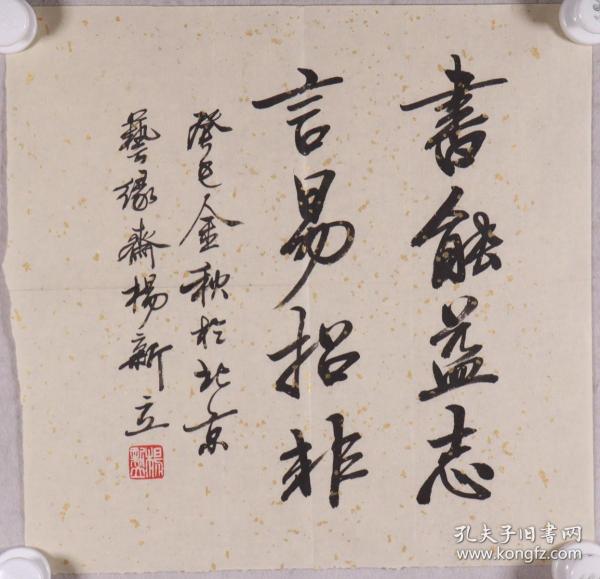 書能益志
言易招非
癸巳金秋於北京
藝緣齋楊新立
孔夫子旧书网
www.kongfz.com